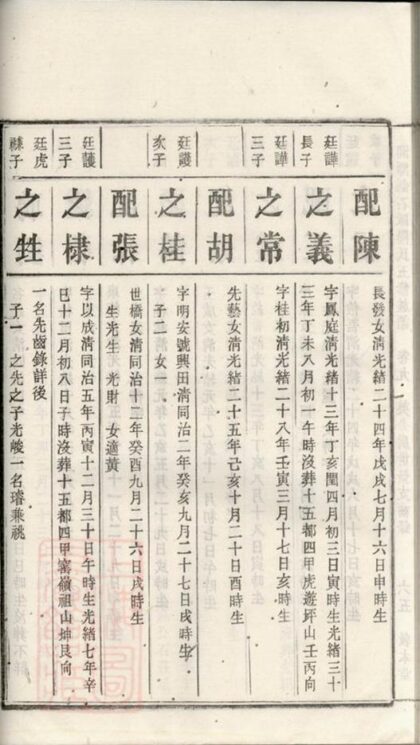 配陳
長發女清光緒二十四年戊戌七月十六日申時生
廷譁長子
之義
字鳳庭清光緒十三年丁亥閏四月初三日寅時生光緒三十
三年丁未八月初一午時沒葬十五都四甲虎遊坪山壬丙向
廷譁三子
之常
字桂初清光緒二十八年壬寅三月十七日亥時生
配胡
先藝女清光緒二十五年己亥十月二十日酉時生
廷護次子
之桂
字明安號興田清同治二年癸亥九月二十七日戌時生
子二 女一
配張
世橋女清同治十二年癸酉九月二十六日戌時生
生光生 光財 女適黃
廷護三子
之棣
字以成清同治五年丙寅十二月三十日午時生光緒七年辛
巳十二月初八日子時沒葬十五都四甲窰嶺祖山坤艮向
廷虎嗣子
之甡
一名先齒錄詳後
子一 之先之子光峻一名璿兼祧